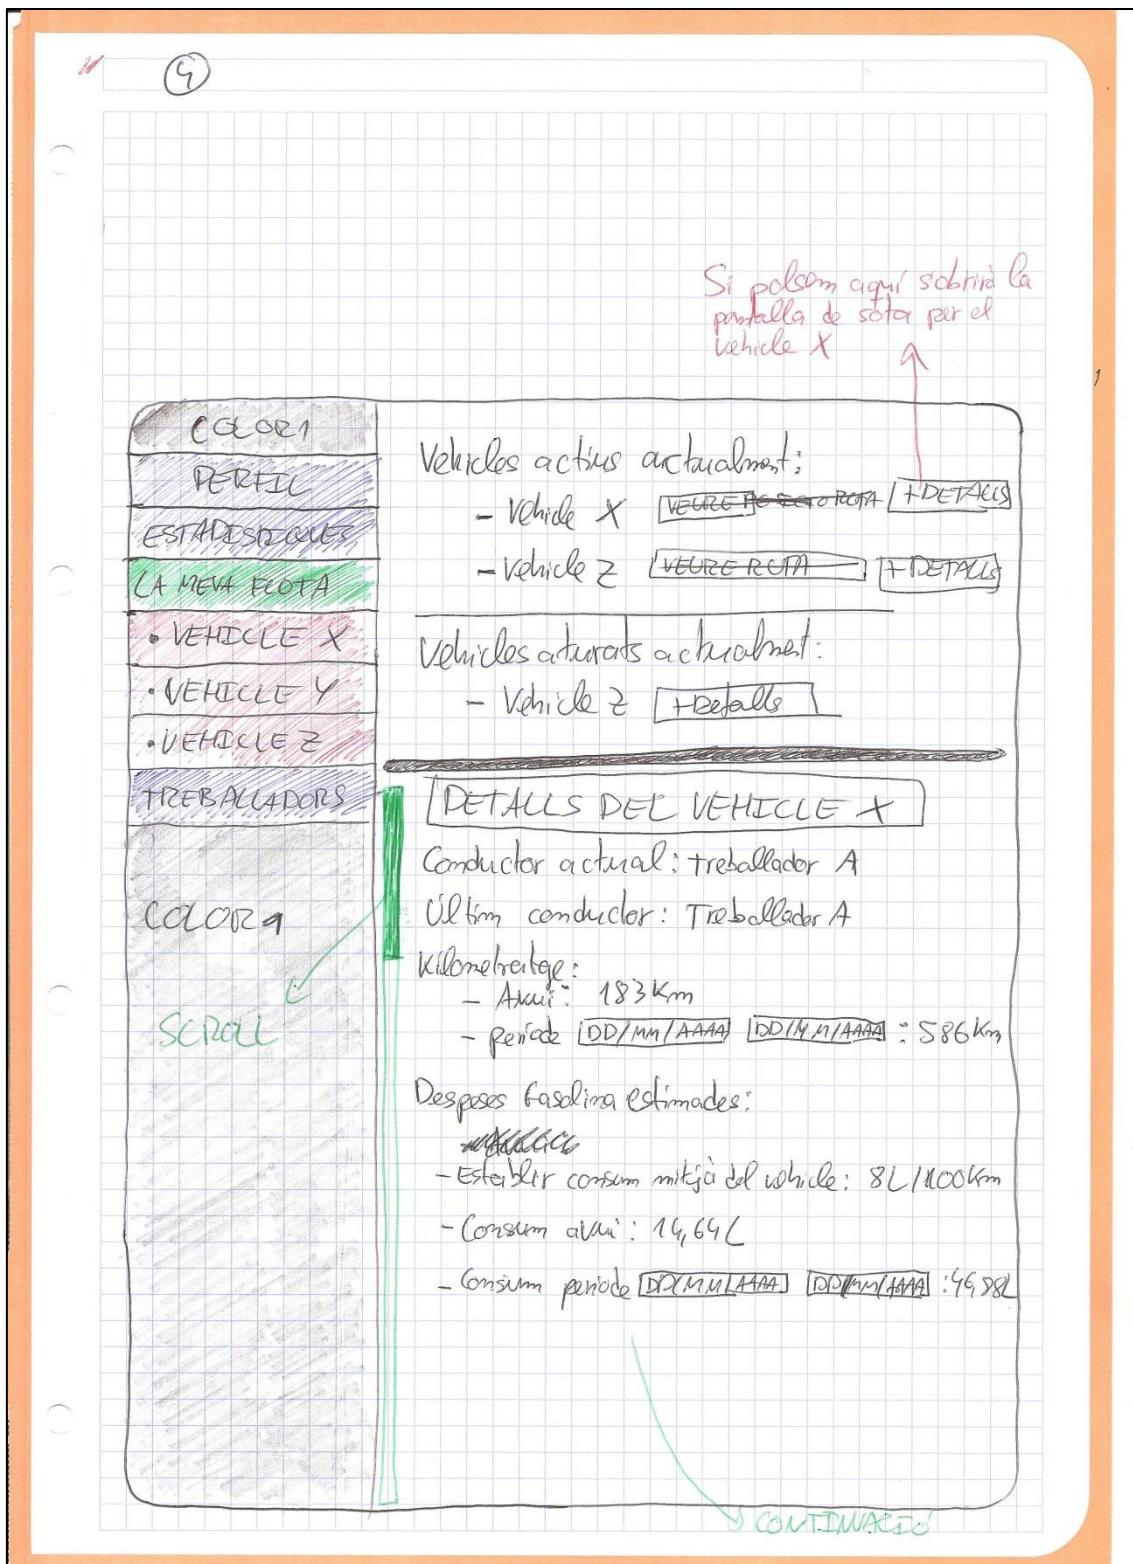 4
Si polsem aquí s'obrirà la
pantalla de sota per el
vehicle X
COLOR1
PERFIL
ESTADISTIQUES
LA MEVA FLOTA
• VEHICLE X
• VEHICLE Y
• VEHICLE Z
TREBALLADORS
COLOR1
SCROLL
Vehicles actius actualment:
- Vehicle X VEURE ROTA +DETALLS
- Vehicle Z VEURE RUTA +DETALLS
Vehicles aturats actualment:
- Vehicle Z +Detalls
DETALLS DEL VEHICLE X
Conductor actual: treballador A
Últim conductor: Treballador A
Kilometratge:
- Avui: 183 Km
- període DD/MM/AAAA DD/MM/AAAA : 586 Km
Despeses Gasolina estimades:
- Establir consum mitjà del vehicle: 8L/100Km
- Consum avui: 14,64L
- Consum període DD/MM/AAAA DD/MM/AAAA : 46,88L
CONTINUACIÓ